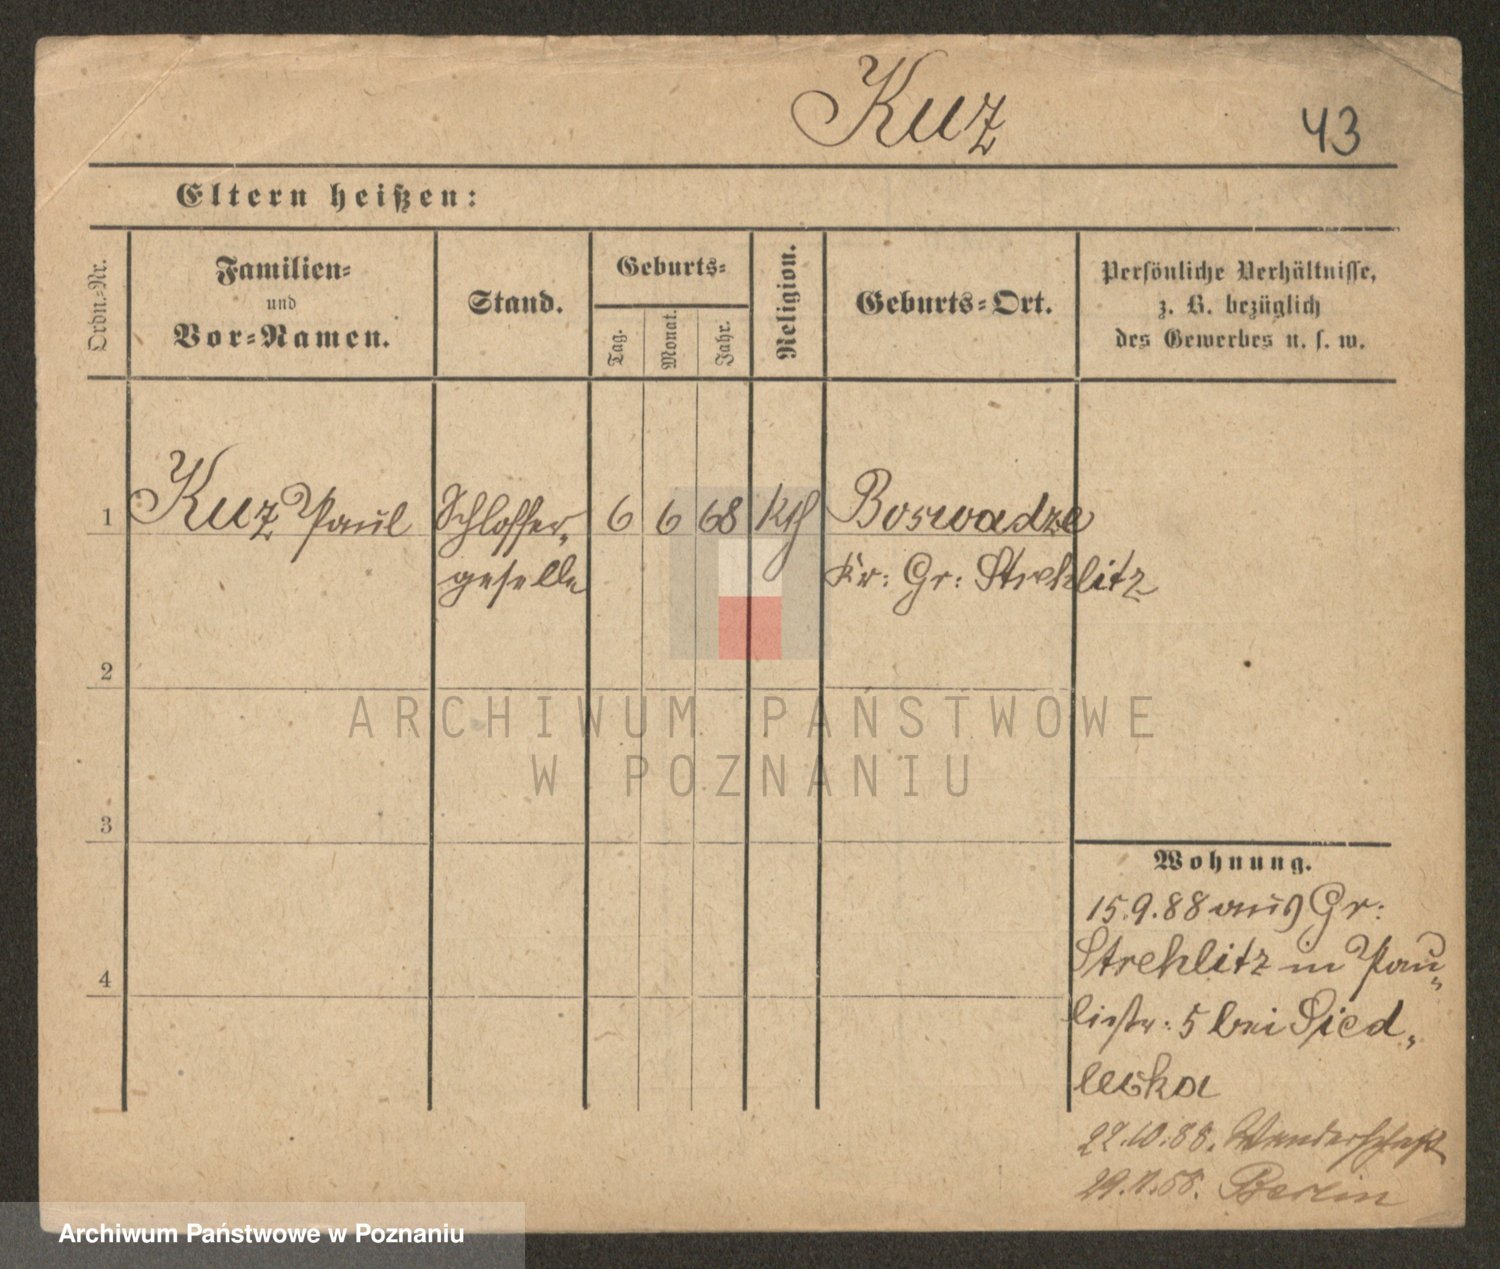 Kuz
43
Eltern heißen:
Ordn.-Nr.
Familien-
und
Vor-Namen.
Stand.
Geburts-
Tag.
Monat.
Jahr.
Religion.
Geburts-Ort.
Persönliche Verhältnisse,
z. B. bezüglich
des Gewerbes u. s. w.
1 Kuz Paul Schlosser- 6 6 68 kth Boswadze
geselle Kr: Gr: Strehlitz
2
3
4
Wohnung.
15.9.88 aus Gr:
Strehlitz in Pau-
listr: 5 bei Sied-
leska
22.10.88. Wanderschaft
29.11.88. Berlin
ARCHIWUM PAŃSTWOWE
W POZNANIU
Archiwum Państwowe w Poznaniu